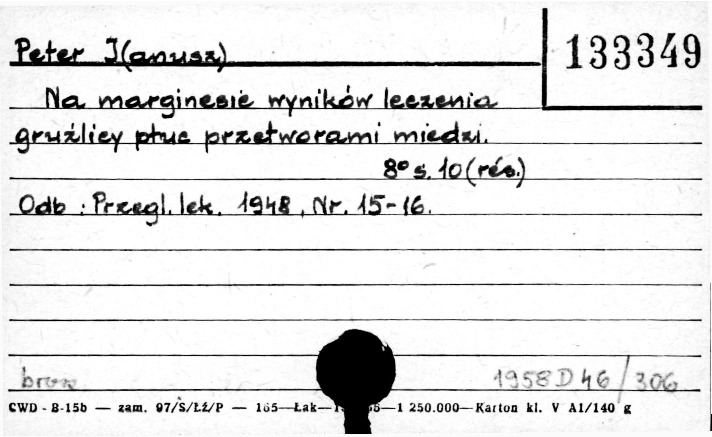 Peter J(anusz)
133349
Na marginesie wyników leczenia
gruźlicy płuc przetworami miedzi.
8° s. 10 (rés.)
Odb : Przegl. lek. 1948, Nr. 15-16.
brosz
1958 D 46/306
CWD - B-15b — zam. 97/S/Łź/P — 165—Łak—1 250.000—Karton kl. V A1/140 g